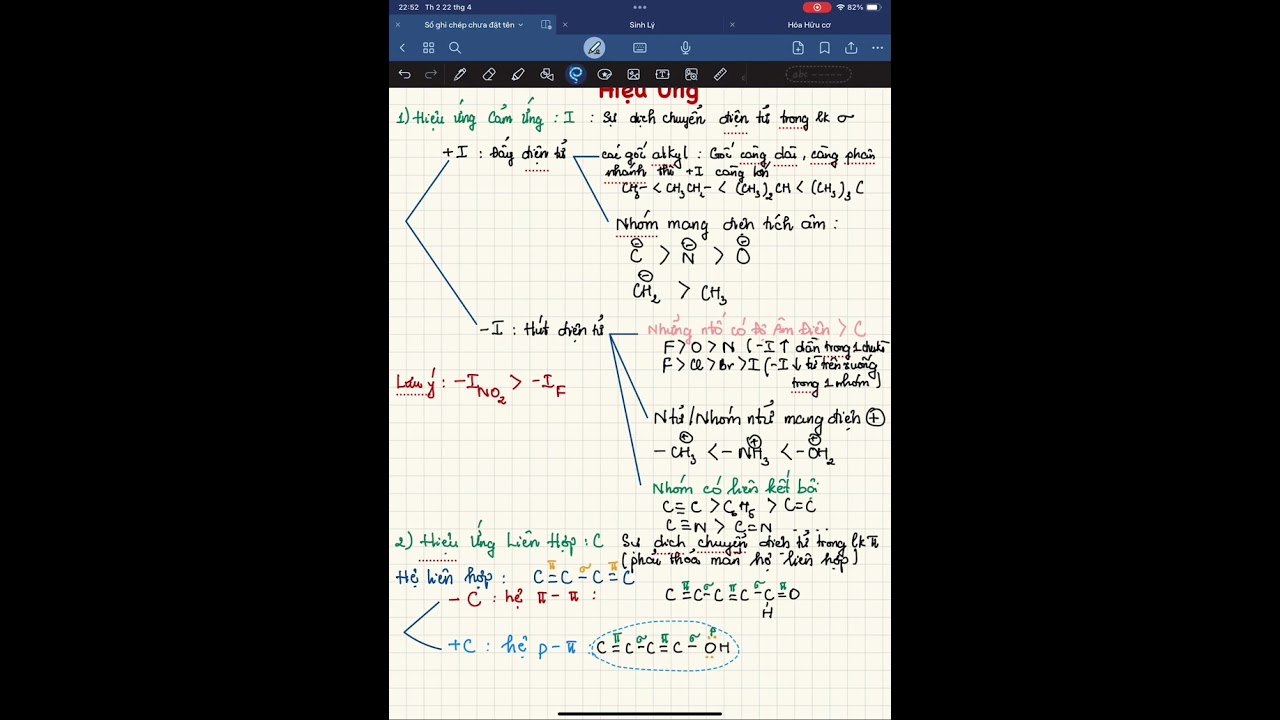 22:52 Th 2 22 thg 4
82%
Sổ ghi chép chưa đặt tên
Sinh Lý
Hóa Hữu cơ
abc
Hiệu Ứng
1) Hiệu ứng Cảm ứng : I : Sự dịch chuyển điện tử trong lk σ
+I : Đẩy điện tử
các gốc alkyl : Gốc càng dài, càng phân
nhánh thì +I càng lớn
CH3- < CH3CH2- < (CH3)2CH < (CH3)3C
Nhóm mang điện tích âm :
C⊖ > N⊖ > O⊖
CH2⊖ > CH3
-I : Hút điện tử
Những ntố có Độ Âm Điện > C
F > O > N (-I ↑ dần trong 1 chu kì
F > Cl > Br > I (-I ↓ từ trên xuống
trong 1 nhóm)
Lưu ý : -I NO2 > -I F
Ntử/Nhóm ntử mang điện ⊕
-CH3⊕ < -NH3⊕ < -OH2⊕
Nhóm có liên kết bội
C≡C > C6H6 > C=C
C≡N > C=N ....
2) Hiệu Ứng Liên Hợp : C Sự dịch chuyển điện tử trong lk π
(phải thỏa mãn hệ liên hợp)
Hệ liên hợp : C=C-C=C
π σ π
-C : hệ π-π :
π σ π σ π
C=C-C=C-C=O
H
+C : hệ p-π :
π σ π σ p
C=C-C=C-OH